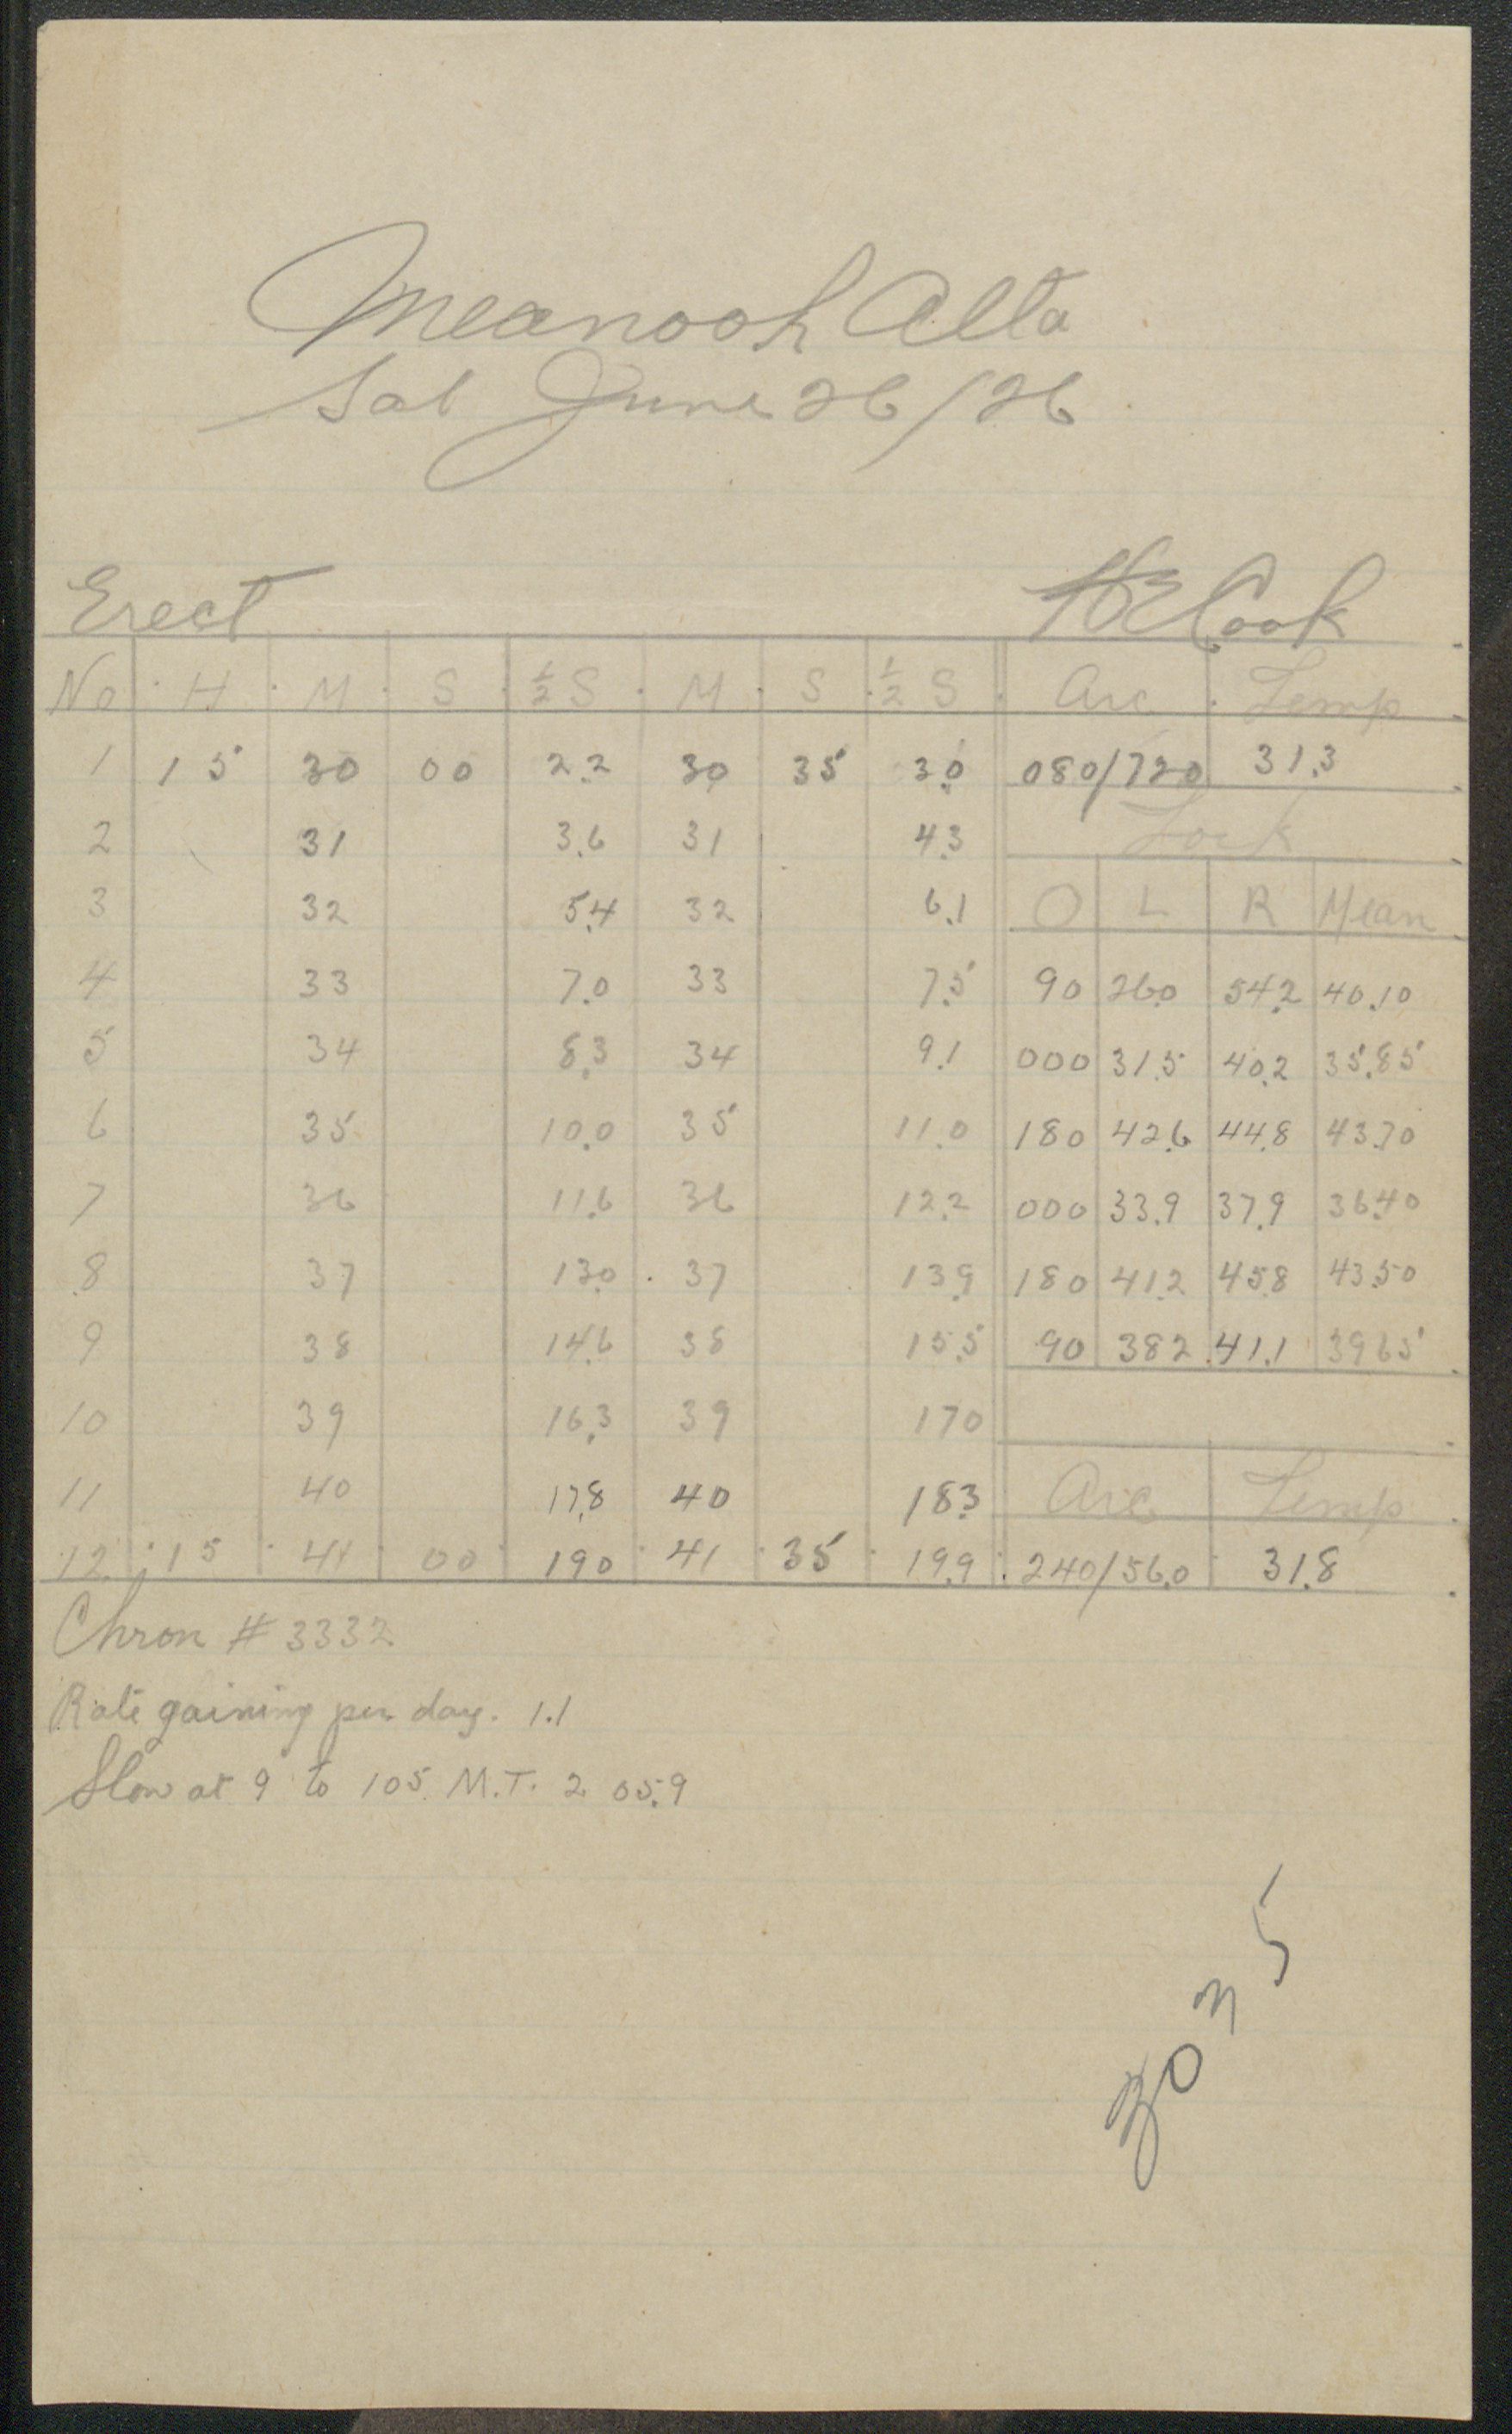 Meanook Alta
Sat June 26/26
Erect H E Cook
No H M S ½ S M S ½ S Arc Temp
1 15 30 00 2.2 30 35 3.0 080/720 31.3
2 31 3.6 31 4.3 Tork
3 32 5.4 32 6.1 O L R Mean
4 33 7.0 33 7.5 90 26.0 54.2 40.10
5 34 8.3 34 9.1 000 31.5 40.2 35.85
6 35 10.0 35 11.0 180 42.6 44.8 43.70
7 36 11.6 36 12.2 000 33.9 37.9 36.40
8 37 13.0 37 13.9 180 41.2 45.8 43.50
9 38 14.6 38 15.5 90 38.2 41.1 39.65
10 39 16.3 39 17.0
11 40 17.8 40 18.3 Arc Temp
12 15 41 00 19.0 41 35 19.9 240/56.0 31.8
Chron # 3332
Rate gaining per day. 1.1
Slow at 9 to 105 M.T. 2 05.9